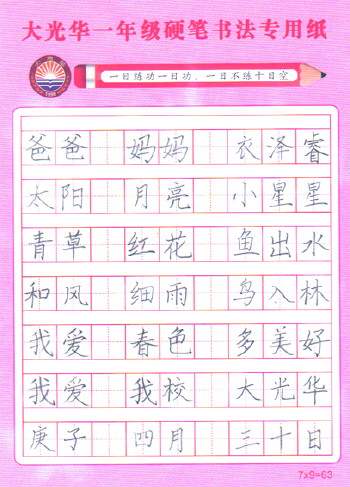 大光华一年级硬笔书法专用纸
一日练功一日功，一日不练十日空
爸爸 妈妈 衣泽睿
太阳 月亮 小星星
青草 红花 鱼出水
和风 细雨 鸟入林
我爱 春色 多美好
我爱 我校 大光华
庚子 四月 三十日
7x9=63